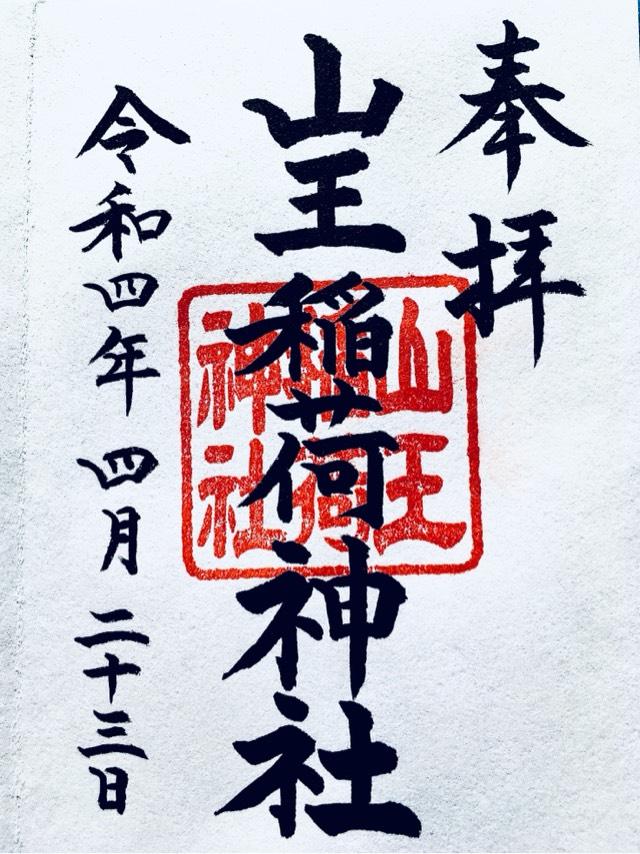 奉拝
山王稲荷神社
山王
稲荷
神社
令和四年四月二十三日